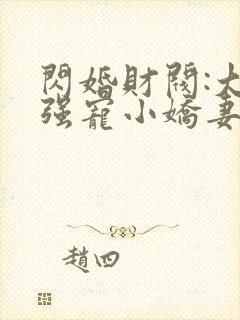 閃婚財閥:大
強寵小嬌妻
趙四